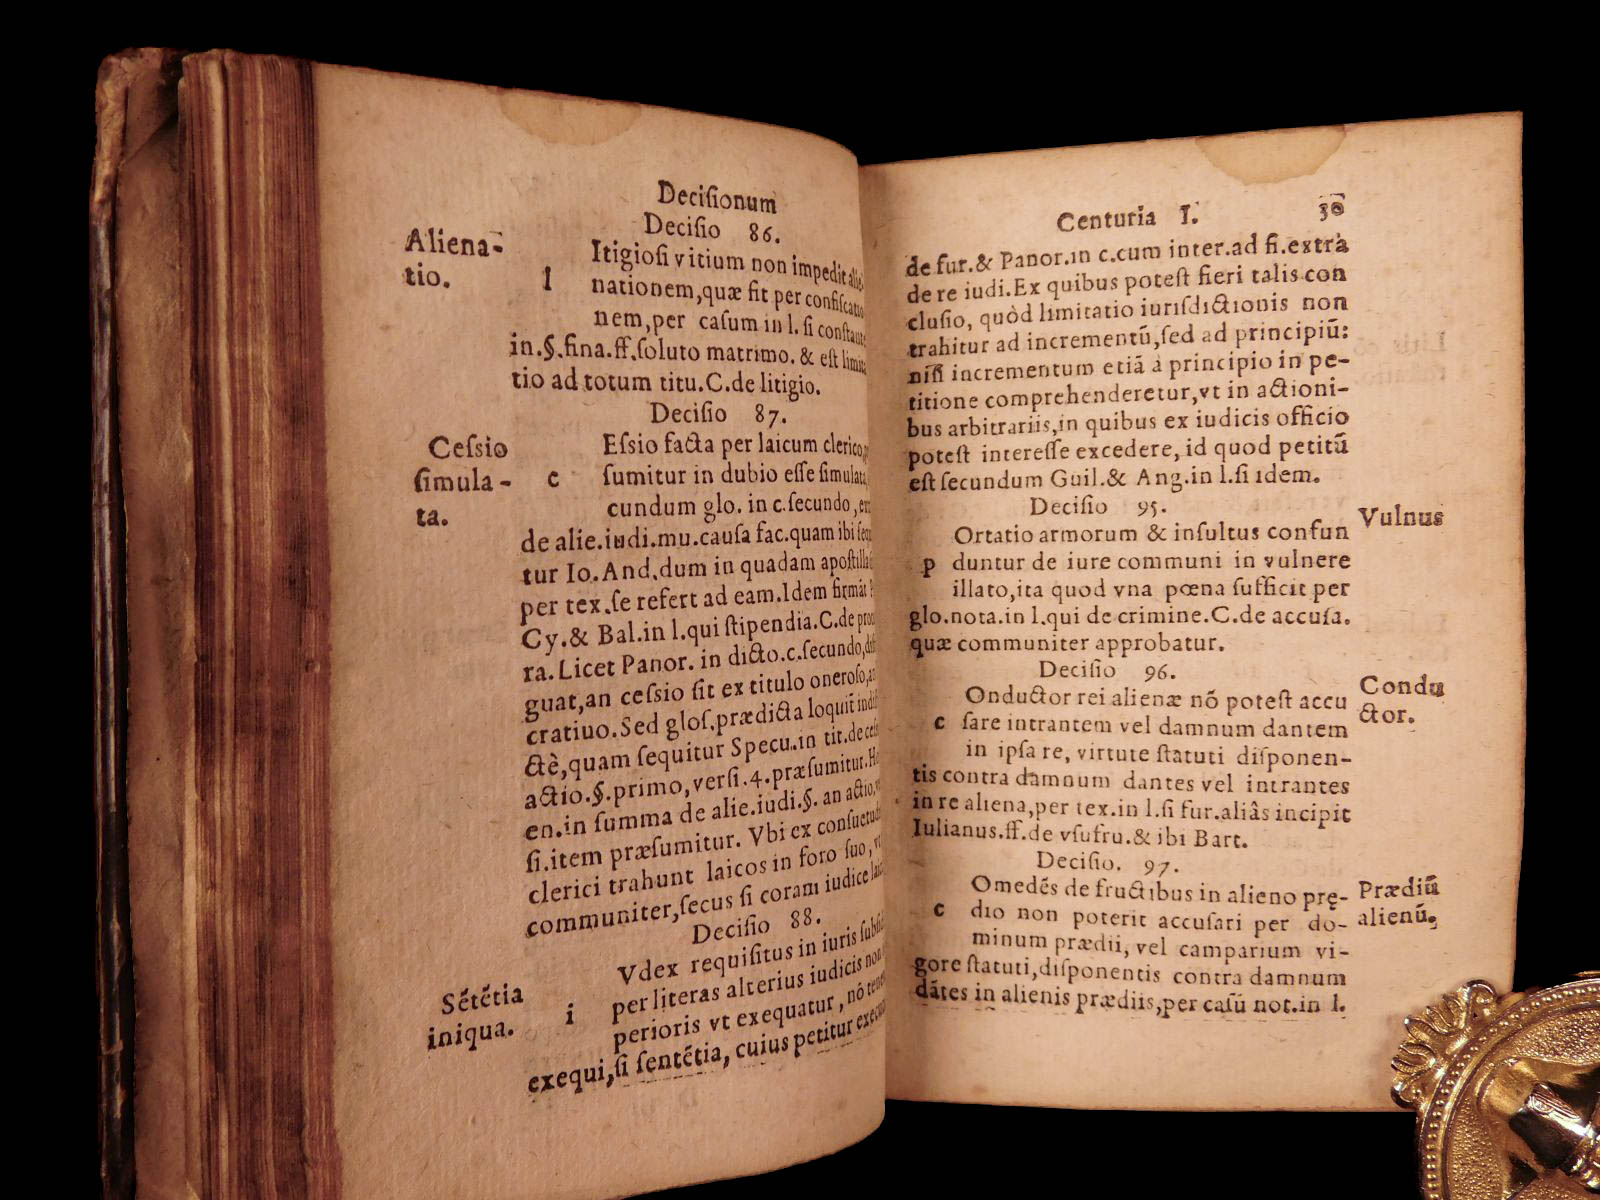 Deciſionum
Deciſio 86.
Aliena-
tio.
l
Itigioſi vitium non impedit alie-
nationem,quæ fit per confiſcatio
nem,per caſum in l.ſi conſtante
in.§.fina.ff.ſoluto matrimo. & eſt limita
tio ad totum titu.C.de litigio.
Deciſio 87.
Ceſsio
ſimula-
ta.
c
Eſsio facta per laicum clerico,
ſumitur in dubio eſſe ſimulata,
cundum glo. in c.ſecundo,
de alie.iudi.mu.cauſa fac.quam ibi
tur Io.And.dum in quadam apoſtilla
per tex.ſe refert ad eam.Idem firmāt
Cy.& Bal.in l.qui ſtipendia.C.de
ra.Licet Panor. in dicto.c.ſecundo,
guat,an ceſsio ſit ex titulo oneroſo,
cratiuo.Sed gloſ.prædicta loquit̄
ctè,quam ſequitur Specu.in tit.de
actio.§.primo,verſi.4.præſumitur.
en.in ſumma de alie.iudi.§. an actio,
ſi.item præſumitur. Vbi ex conſuetudi
clerici trahunt laicos in foro ſuo,
communiter,ſecus ſi coram iudice
Deciſio 88.
Sētētia
iniqua.
i
Vdex requiſitus in iuris
per literas alterius iudicis non
perioris vt exequatur, nō
exequi,ſi ſentētia, cuius petitur
Centuria I. 30
de fur.& Panor.in c.cum inter.ad fi.extra
de re iudi.Ex quibus poteſt fieri talis con
cluſio, quòd limitatio iuriſdictionis non
trahitur ad incrementū,ſed ad principiū:
niſi incrementum etiā à principio in pe-
titione comprehenderetur,vt in actioni-
bus arbitrariis,in quibus ex iudicis officio
poteſt intereſſe excedere, id quod petitū
eſt ſecundum Guil.& Ang.in l.ſi idem.
Deciſio 95.
Vulnus
p
Ortatio armorum & inſultus confun
duntur de iure communi in vulnere
illato,ita quod vna pœna ſufficit per
glo.nota.in l.qui de crimine.C.de accuſa.
quæ communiter approbatur.
Deciſio 96.
Condu
ctor.
c
Onductor rei alienæ nō poteſt accu
ſare intrantem vel damnum dantem
in ipſa re, virtute ſtatuti diſponen-
tis contra damnum dantes vel intrantes
in re aliena,per tex.in l.ſi fur.aliâs incipit
Iulianus.ff.de vſufru.& ibi Bart.
Deciſio. 97.
Prædiū
alienū.
c
Omedēs de fructibus in alieno prę-
dio non poterit accuſari per do-
minum prædii, vel camparium vi-
gore ſtatuti,diſponentis contra damnum
dātes in alienis prædiis,per caſū not.in l.